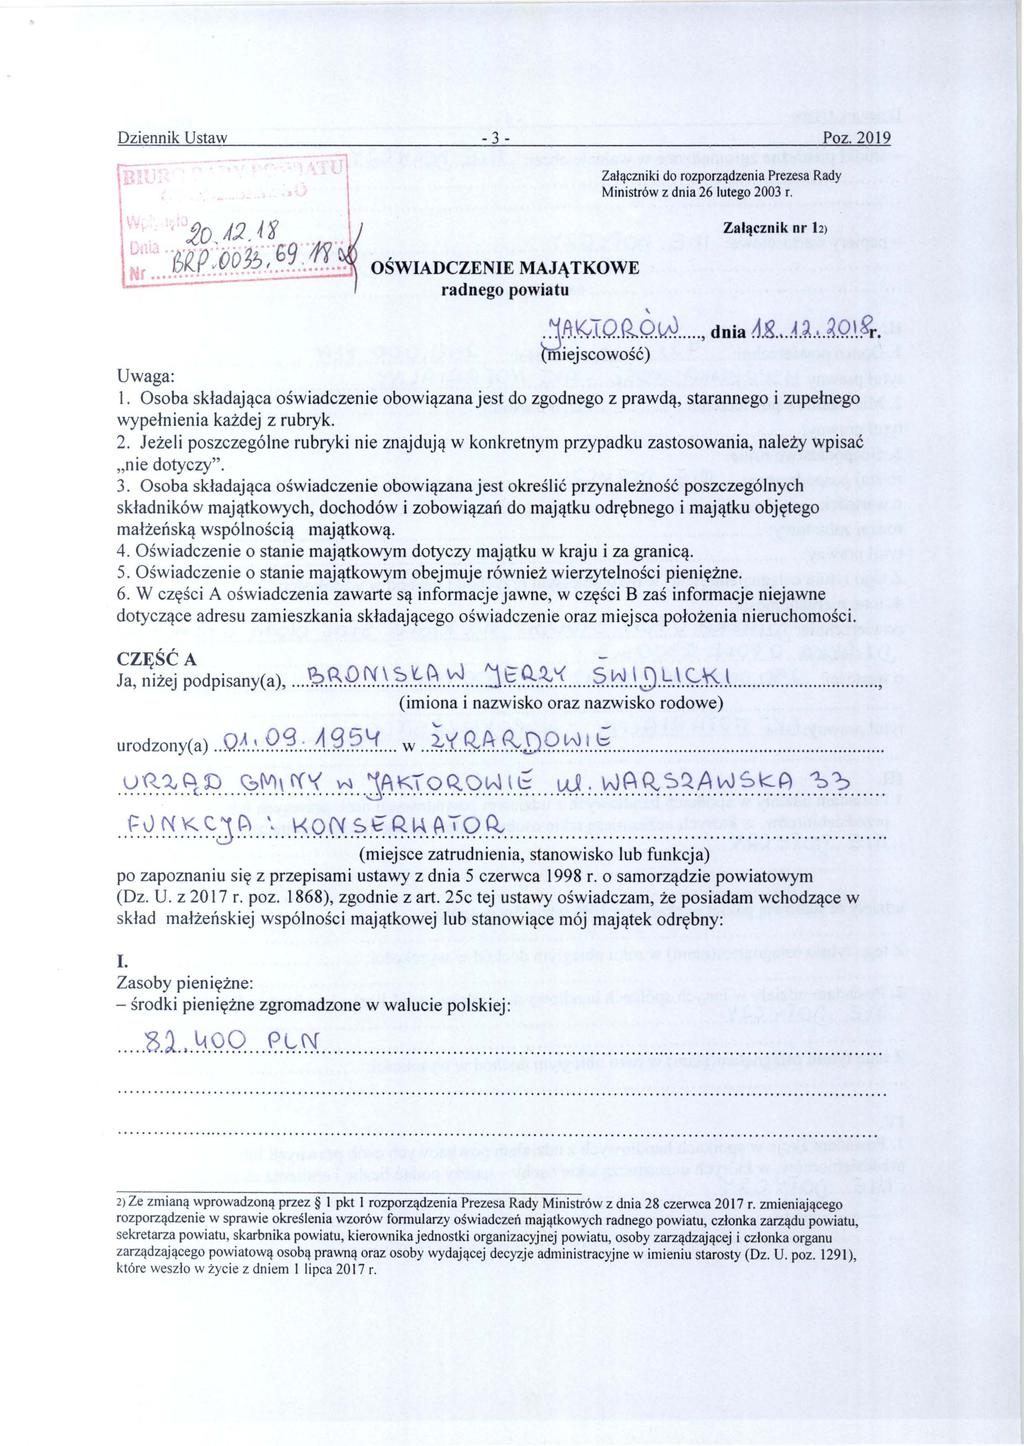 Dziennik Ustaw - 3 - Poz. 2019
Załączniki do rozporządzenia Prezesa Rady
Ministrów z dnia 26 lutego 2003 r.
Załącznik nr 12)
20.12.18
Dnia
Nr BRP.0033.69.18
OŚWIADCZENIE MAJĄTKOWE
radnego powiatu
JAKTORÓW, dnia 18.12.2018r.
(miejscowość)
Uwaga:
1. Osoba składająca oświadczenie obowiązana jest do zgodnego z prawdą, starannego i zupełnego
wypełnienia każdej z rubryk.
2. Jeżeli poszczególne rubryki nie znajdują w konkretnym przypadku zastosowania, należy wpisać
„nie dotyczy”.
3. Osoba składająca oświadczenie obowiązana jest określić przynależność poszczególnych
składników majątkowych, dochodów i zobowiązań do majątku odrębnego i majątku objętego
małżeńską wspólnością majątkową.
4. Oświadczenie o stanie majątkowym dotyczy majątku w kraju i za granicą.
5. Oświadczenie o stanie majątkowym obejmuje również wierzytelności pieniężne.
6. W części A oświadczenia zawarte są informacje jawne, w części B zaś informacje niejawne
dotyczące adresu zamieszkania składającego oświadczenie oraz miejsca położenia nieruchomości.
CZĘŚĆ A
Ja, niżej podpisany(a), BRONISŁAW JERZY ŚWIDLICKI,
(imiona i nazwisko oraz nazwisko rodowe)
urodzony(a) 01.09.1954 w ŻYRARDOWIE
URZĄD GMINY W JAKTOROWIE ul. WARSZAWSKA 33
FUNKCJA: KONSERWATOR
(miejsce zatrudnienia, stanowisko lub funkcja)
po zapoznaniu się z przepisami ustawy z dnia 5 czerwca 1998 r. o samorządzie powiatowym
(Dz. U. z 2017 r. poz. 1868), zgodnie z art. 25c tej ustawy oświadczam, że posiadam wchodzące w
skład małżeńskiej wspólności majątkowej lub stanowiące mój majątek odrębny:
I.
Zasoby pieniężne:
– środki pieniężne zgromadzone w walucie polskiej:
82.400 PLN
2) Ze zmianą wprowadzoną przez § 1 pkt 1 rozporządzenia Prezesa Rady Ministrów z dnia 28 czerwca 2017 r. zmieniającego
rozporządzenie w sprawie określenia wzorów formularzy oświadczeń majątkowych radnego powiatu, członka zarządu powiatu,
sekretarza powiatu, skarbnika powiatu, kierownika jednostki organizacyjnej powiatu, osoby zarządzającej i członka organu
zarządzającego powiatową osobą prawną oraz osoby wydającej decyzje administracyjne w imieniu starosty (Dz. U. poz. 1291),
które weszło w życie z dniem 1 lipca 2017 r.